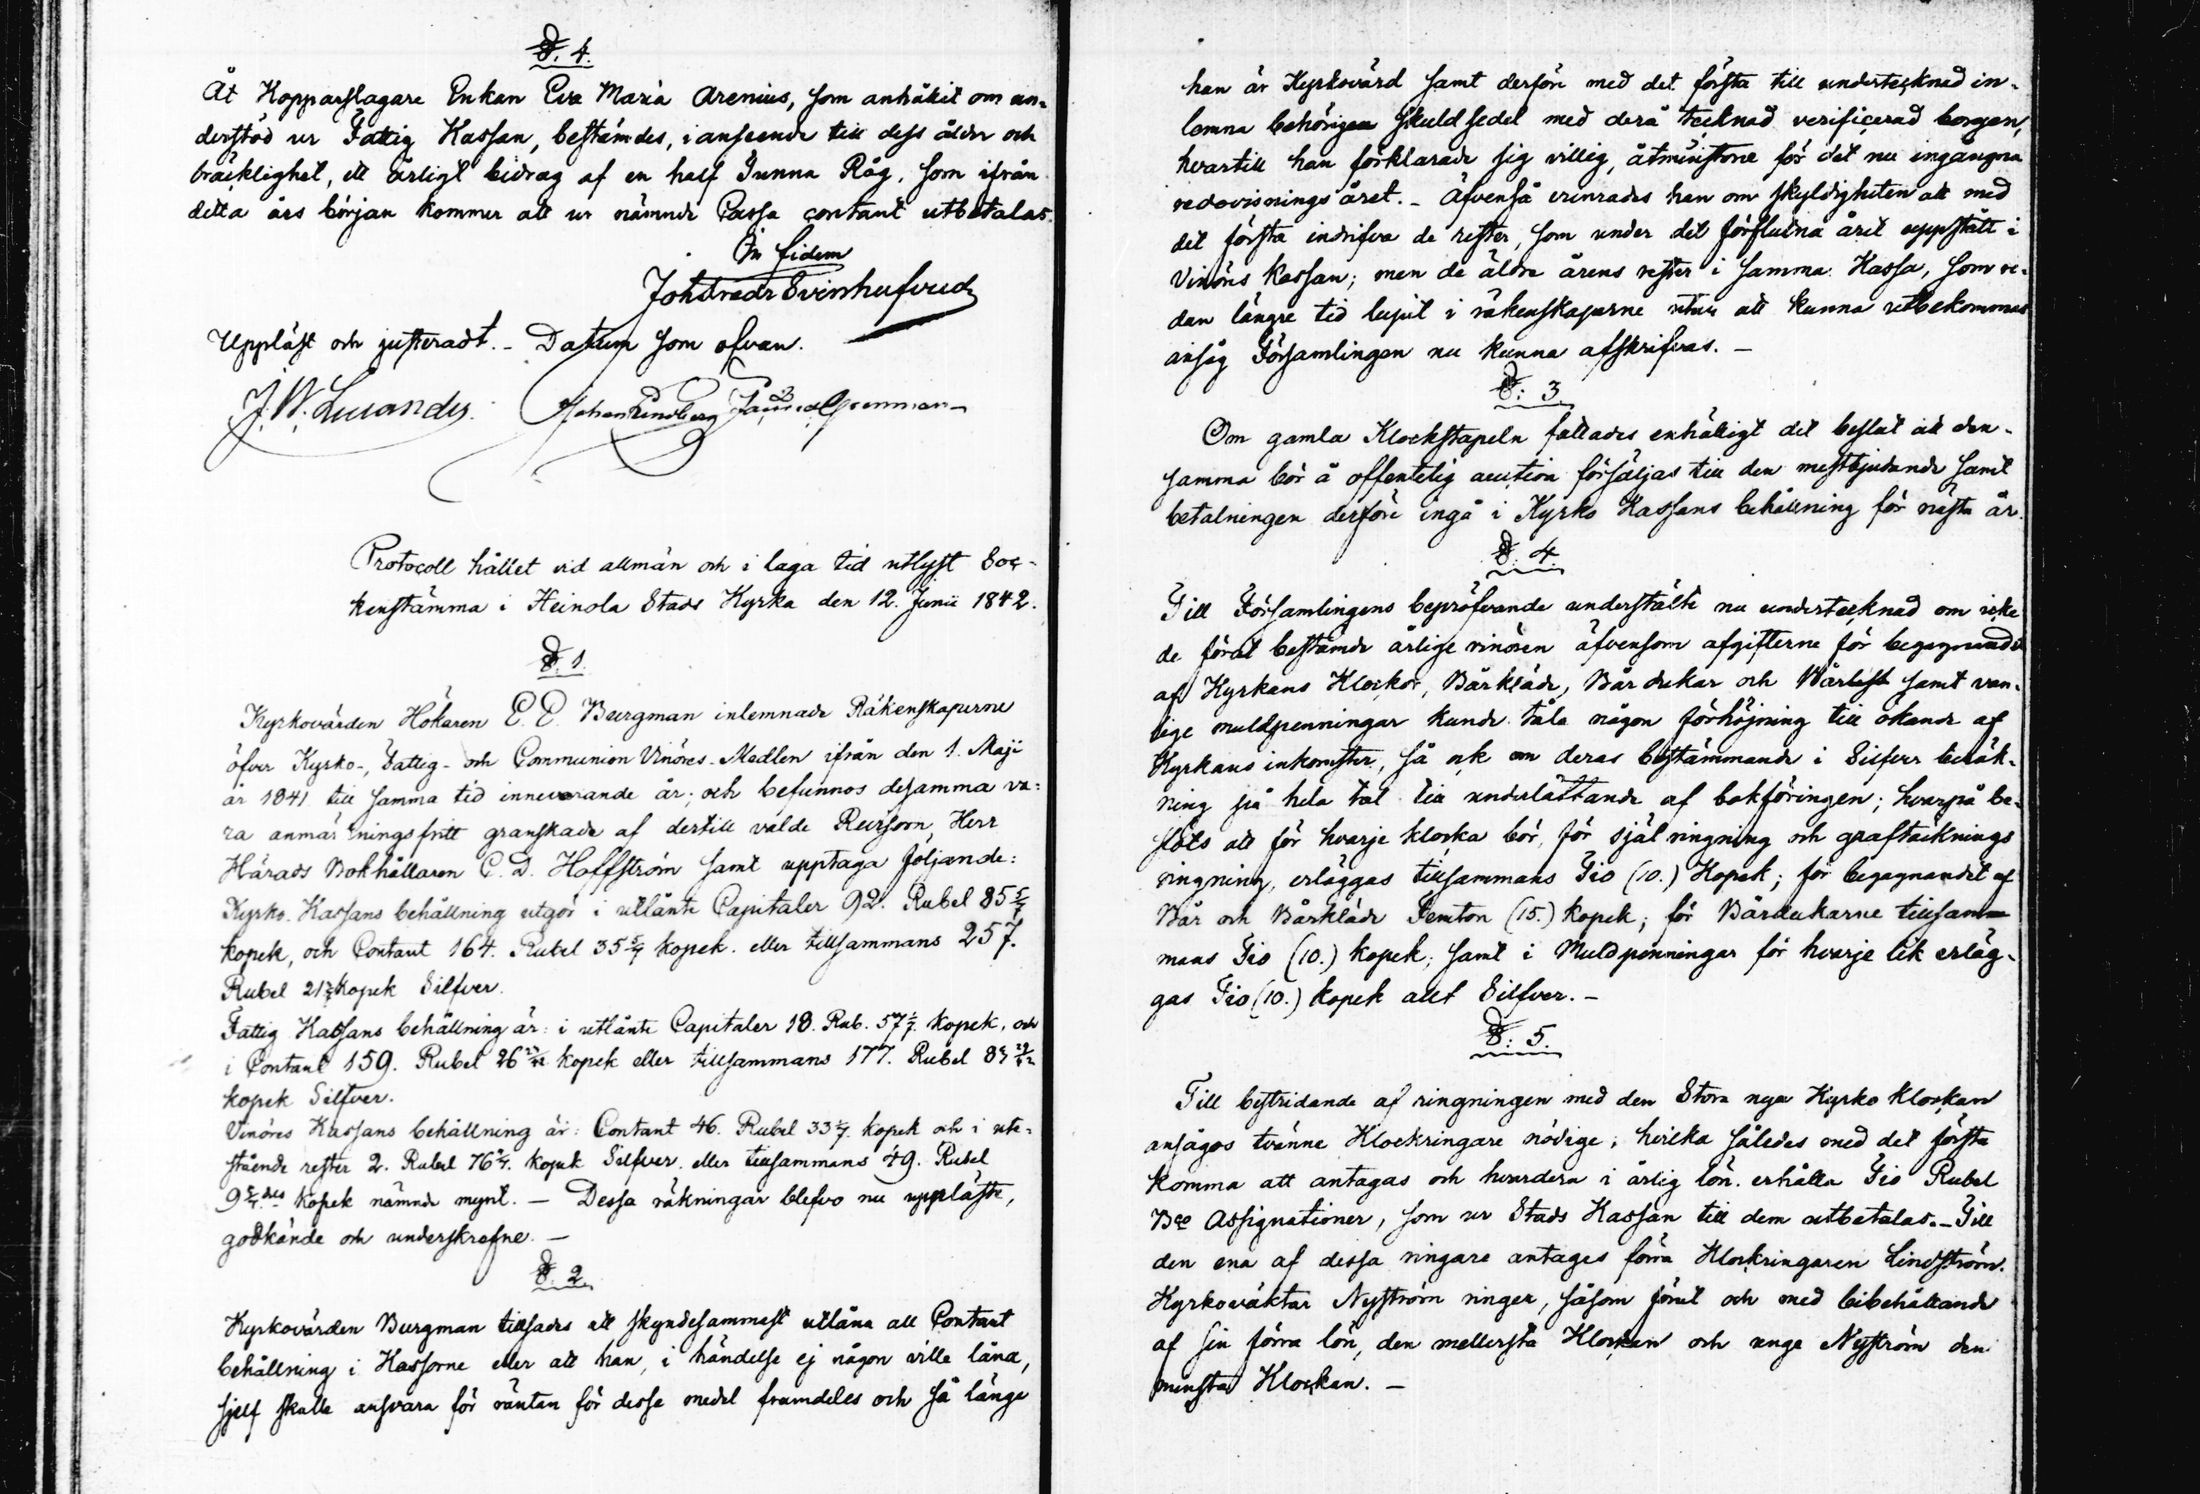 §. 4.
Åt Kopparslagare Enkan Eva Maria Arenius, som anhållit om un-
derstöd ur Fattig Kassan, bestämdes, i anseende till dess ålder och
bräcklighet, ett årligt bidrag af en half Tunna Råg, som ifrån
detta års början kommer att ur nämnde Cassa contant utbetalas.
In fidem
Joh Fredr Svinhufvud
Uppläst och justeradt. – Datum som ofvan.
J. W. Lucander Johan Lindberg
Protocoll hållet vid allmän och i laga tid utlyst Soc-
kenstämma i Heinola Stads Kyrka den 12. Junii 1842.
§. 1.
Kyrkovärden Hökaren C. E. Bergman inlemnade Räkenskaperne
öfver Kyrko-, Fattig- och Communion Vinöres-Medlen ifrån den 1. Maji
år 1841 till samma tid innevarande år; och befunnos desamma va-
ra anmärkningsfritt granskade af dertill valde Revisorn, Herr
Härads Bokhållaren C. D. Hoffström samt upptaga följande:
Kyrko-Kassans behållning utgör i utlånte Capitaler 92. Rubel 85 5/7
kopek, och Contant 164. Rubel 35 5/7 kopek. eller tillsammans 257.
Rubel 21 3/7 kopek Silfver.
Fattig Kassans behållning är: i utlånte Capitaler 18. Rub. 57 1/7. kopek, och
i Contant 159. Rubel 26 kopek eller tillsammans 177. Rubel
kopek Silfver.
Vinöres Kassans behållning är: Contant 46. Rubel 33 kopek och i ute-
stående rester 2. Rubel 76 kopek Silfver. eller tillsammans 49. Rubel
9 kopek nämnde mynt. – Dessa räkningar blefvo nu uppläste,
godkände och underskrefne. –
§. 2.
Kyrkovärden Bergman tillsades att skyndesammast utlåna all Contant
behållning i Kassorne eller att han, i händelse ej någon ville låna,
sjelf skulle ansvara för räntan för desse medel framdeles och så länge
han är Kyrkovärd samt derföre med det första till undertecknad in-
lemna behörigen skuldsedel med derå tecknad verificerad borgen,
hvartill han förklarade sig villig, åtminstone för det nu ingångna
redovisnings året. – Äfvenså erinrades han om skyldigheten att med
det första indrifva de rester, som under det förflutna året uppstått i
Vinöres kassan; men de äldre årens rester i samma Kassa, som re-
dan längre tid lupit i räkenskaperne utan att kunna utbekommas
ansåg Församlingen nu kunna afskrifvas. –
§. 3.
Om gamla Klockstapeln fattades enhälligt det beslut att den-
samma bör å offentelig auction försäljas till den mestbjudande samt
betalningen derföre ingå i Kyrko Kassans behållning för nästa år.
§. 4.
Till Församlingens bepröfvande understälte nu undertecknad om icke
de förut bestämde årlige vinören äfvensom afgifterne för begagnande
af Kyrkans Klockor, Bårkläde, Bår dukar och samt van-
lige muldpenningar kunde tåla någon förhöjning till ökande af
Kyrkans inkomster, så ock om deras bestämmande i Silfver beräk-
ning på hela tal till underlättande af bokföringen; hvarpå be-
slöts att för hvarje klocka bör, för själ ringning och graftäcknings
ringning, erläggas tillsammans Tio (10.) Kopek; för begagnandet af
Bår och Bårkläde Femton (15.) kopek; för Bårdukarne tillsam-
mans Tio (10.) kopek; samt i Muldpenningar för hvarje lik erläg-
gas Tio (10.) kopek allt Silfver. –
§. 5.
Till bestridande af ringningen med den Stora nya Kyrko klockan
ansågos tvänne Klockringare nödige, hvilka således med det första
komma att antagas och hvardera i årlig lön. erhålla Tio Rubel
Bco Assignationer, som ur Stads Kassan till dem utbetalas. – Till
den ena af dessa ringare antages förra Klockringaren Lindström.
Kyrkoväktar Nyström ringer, såsom förut och med bibehållande
af sin förra lön, den mellersta Klockan och unge Nyström den
minsta Klockan. –